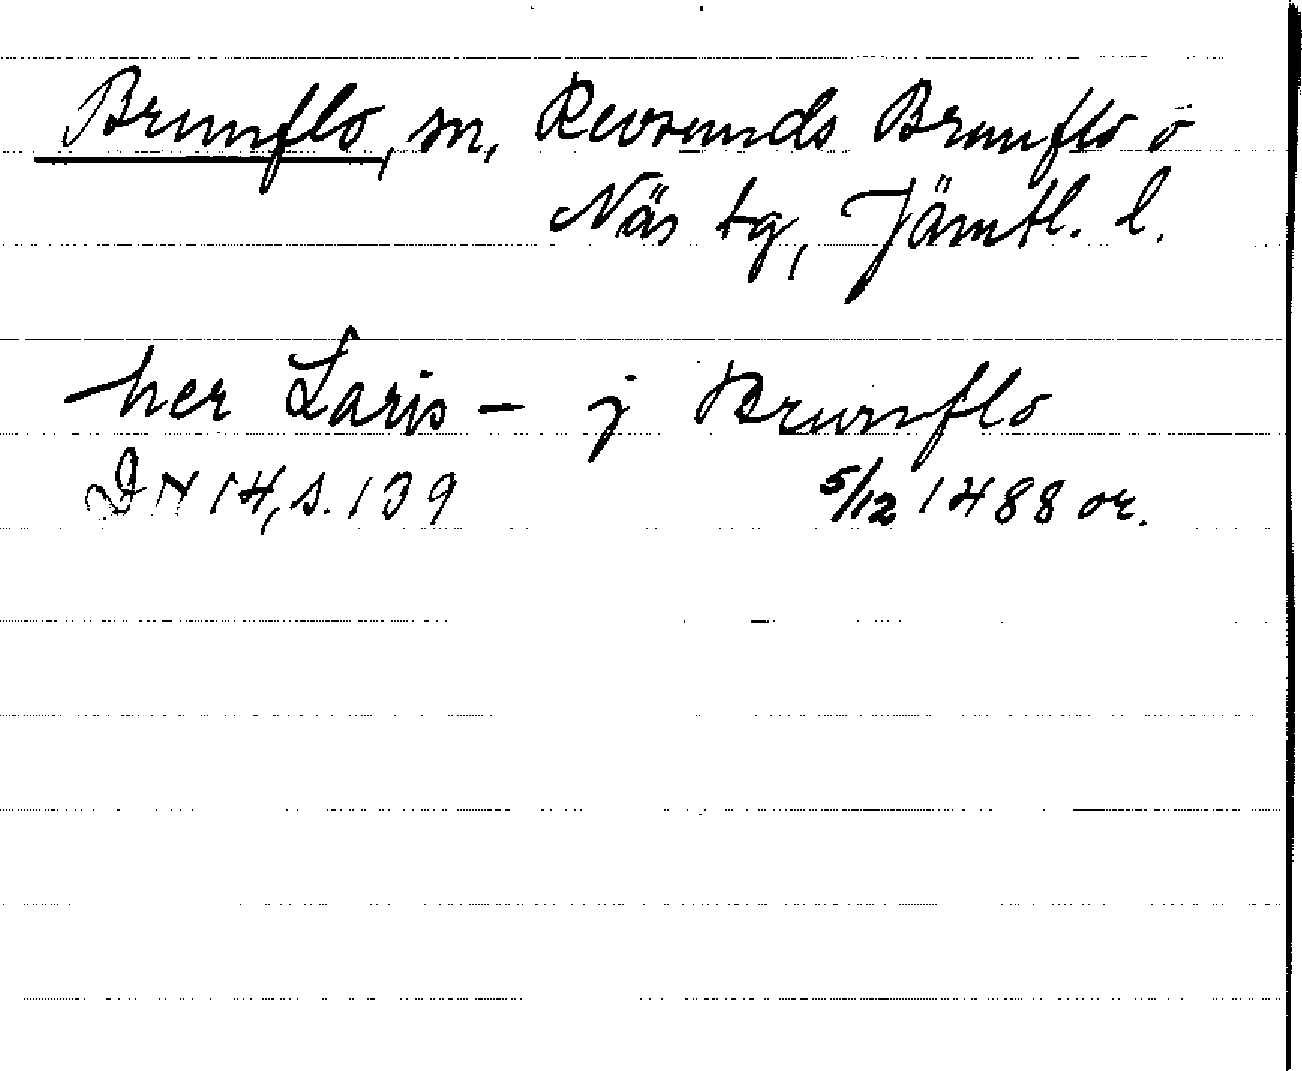 Brunflo, sn, Revsunds Brunflo o
Näs tg, Jämtl. l.
her Laris – j Brunflo
DN 14, s. 139 5/12 1488 or.